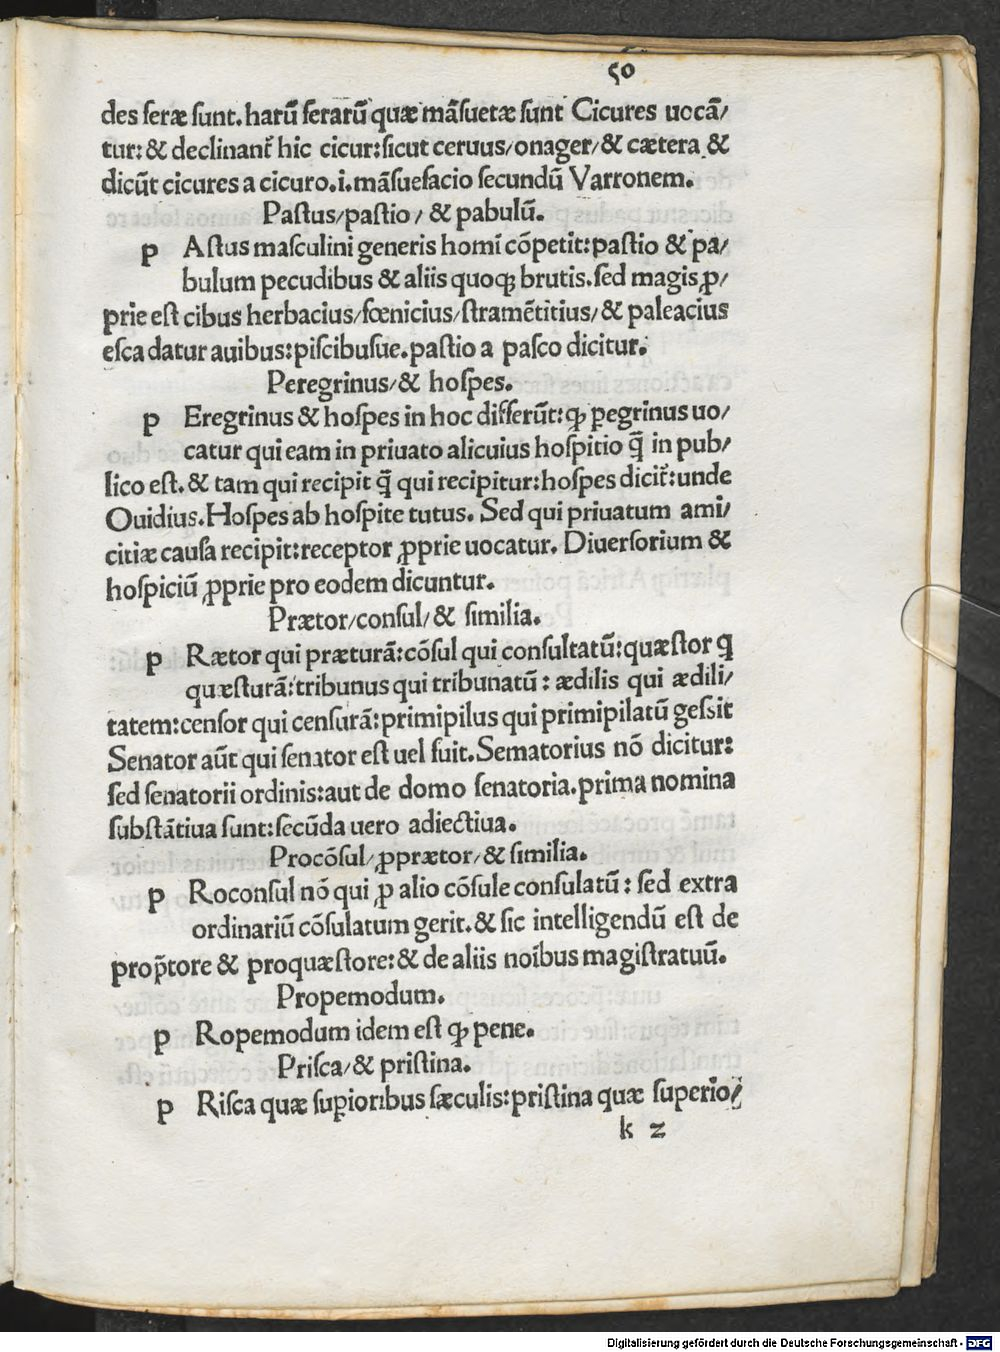 50
des feræ sunt. harū ferarū quæ māsuetæ sunt Cicures uocā/
tur: & declinant᷑ hic cicur: sicut ceruus/onager/& cætera &
dicūt cicures a cicuro.i.māsuefacio secundū Varronem.
Pastus/pastio/ & pabulū.
p Astus masculini generis homī cōpetit: pastio & pa/
bulum pecudibus & aliis quoqꝫ brutis. sed magis ꝓ/
prie est cibus herbacius/fœnicius/stramētitius/& paleacius
esca datur auibus: piscibusue. pastio a pasco dicitur.
Peregrinus/& hospes.
p Eregrinus & hospes in hoc differūt: ꝙ ꝑegrinus uo/
catur qui eam in priuato alicuius hospitio q̄ in pub/
lico est. & tam qui recipit q̄ qui recipitur: hospes dicit᷑: unde
Ouidius. Hospes ab hospite tutus. Sed qui priuatum ami/
citiæ causa recipit: receptor ꝓprie uocatur. Diuersorium &
hospiciū ꝓprie pro eodem dicuntur.
Prætor/consul/& similia.
p Rætor qui præturā: cōsul qui consultatū: quæstor q̄
quæsturā: tribunus qui tribunatū: ædilis qui ædili/
tatem: censor qui censurā: primipilus qui primipilatū gessit
Senator aūt qui senator est uel fuit. Sematorius nō dicitur:
sed senatorii ordinis: aut de domo senatoria. prima nomina
substātiua sunt: secūda uero adiectiua.
Procōsul/ꝓprætor/& similia.
p Roconsul nō qui ꝓ alio cōsule consulatū: sed extra
ordinariū cōsulatum gerit. & sic intelligendū est de
prop̄tore & proquæstore: & de aliis noībus magistratuū.
Propemodum.
p Ropemodum idem est ꝙ pene.
Prisca/& pristina.
p Risca quæ suꝑioribus sæculis: pristina quæ superio/
k 2
Digitalisierung gefördert durch die Deutsche Forschungsgemeinschaft - DFG